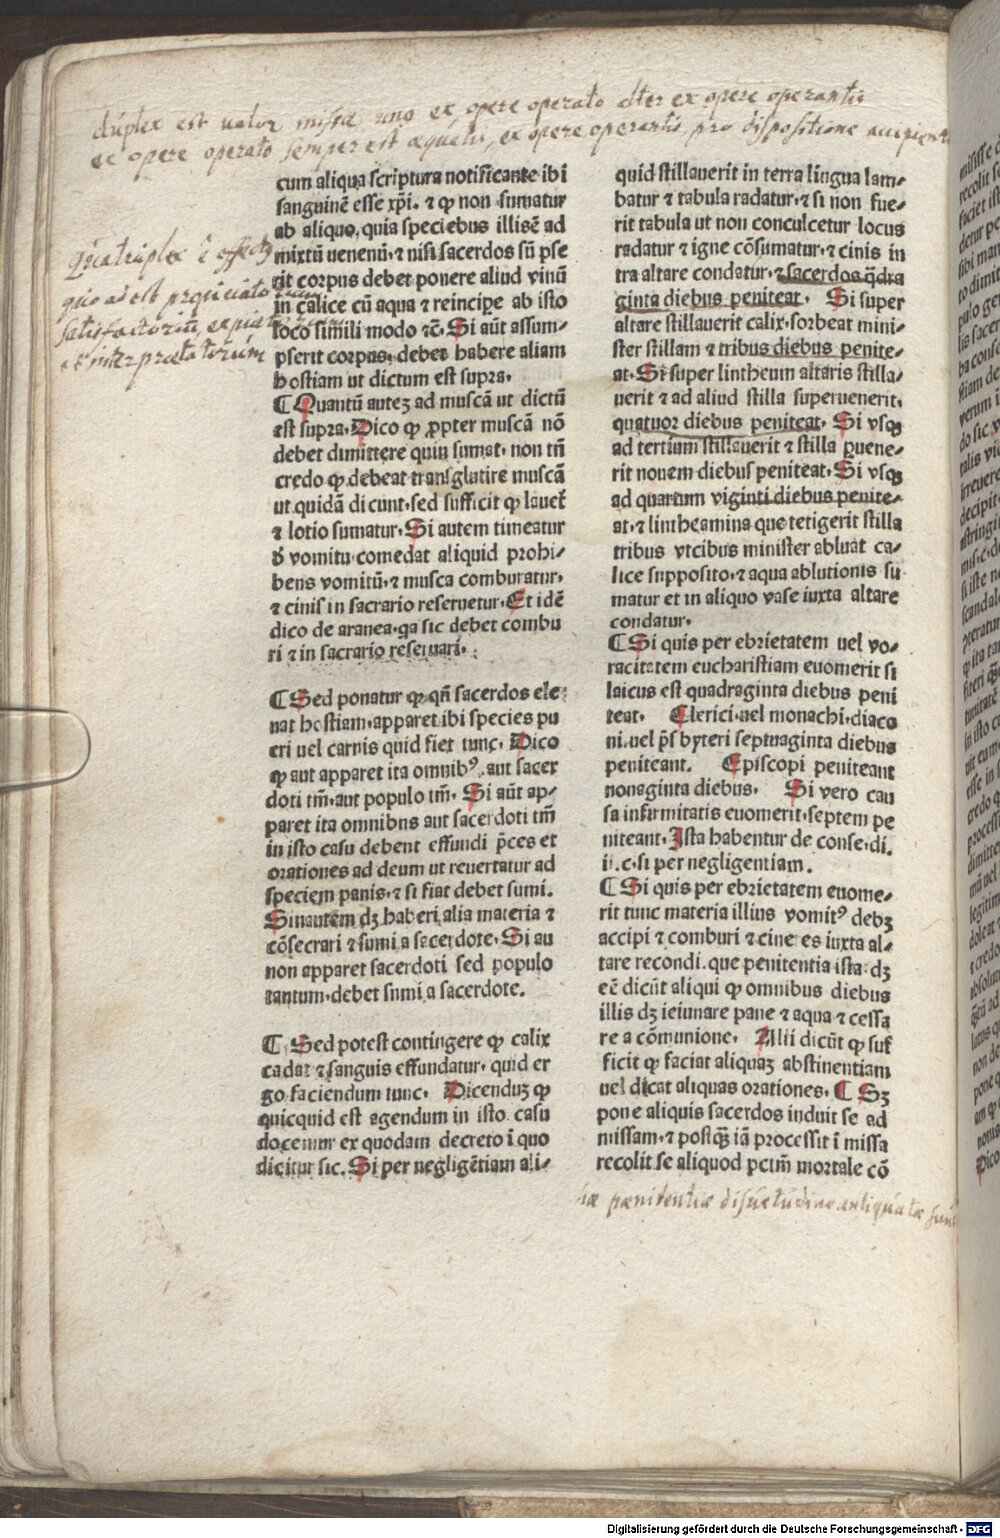 duplex est ualor missæ uno ex opere operato alter ex opere operantis
ex opere operato semper est æqualis, ex opere operantis pro dispositione accipient
Quatruplex ē effectus
satisfactoriū,
et interpretatorium
cum aliqua scriptura notificante ibi
sanguinē esse xp̄i. ⁊ ꝙ non sumatur
ab aliquo, quia speciebus illis ē ad
mixtū uenenū.⁊ nisi sacerdos sū pse
rit corpus debet ponere aliud vinū
in calice cū aqua ⁊ reincipe ab isto
loco simili modo ⁊c̄. Si aūt assum-
pserit corpus, debet habere aliam
hostiam ut dictum est supra.
¶ Quantū autez ad muscā ut dictū
est supra. Dico ꝙ ꝓpter muscā nō
debet dimittere quin sumat. non tn̄
credo ꝙ debeat transglutire muscā
ut quidā dicunt. sed sufficit ꝙ lauet̄
⁊ lotio sumatur. Si autem timeatur
d̄ vomitu. comedat aliquid prohi-
bens vomitū.⁊ musca comburatur.
⁊ cinis in sacrario reseruetur. Et idē
dico de aranea. qa sic debet combu
ri ⁊ in sacrario reseruari.
¶ Sed ponatur ꝙ qn̄ sacerdos ele
uat hostiam. apparet ibi species pu
eri uel carnis quid fiet tunc. Dico
ꝙ aut apparet ita omnibꝰ. aut sacer
doti tm̄. aut populo tm̄. Si aūt ap-
paret ita omnibns aut sacerdoti tm̄
in isto casu debent effundi p̄ces et
orationes ad deum ut reuertatur ad
speciem panis. ⁊ si fiat debet sumi.
Sinautem dꝫ haberi alia materia ⁊
cōsecrari ⁊ sumi a sacerdote. Si au
non apparet sacerdoti sed populo
tantum. debet sumi a sacerdote.
¶ Sed potest contingere ꝙ calix
cadat ⁊ sanguis effundatur. quid er
go faciendum tunc. Dicenduꝫ ꝙ
quicquid est agendum in isto casu
docemur ex quodam decreto ī quo
dicitur sic. Si per negligētiam ali-
quid stillauerit in terra lingua lam-
batur ⁊ tabula radatur. ⁊ si non fue-
rit tabula ut non conculcetur locus
radatur ⁊ igne cōsumatur. ⁊ cinis in
tra altare condatur. ⁊ sacerdos q̄dra
ginta diebus peniteat. Si super
altare stillauerit calix. sorbeat mini-
ster stillam ⁊ tribus diebus penite-
at. Si super lintheum altaris stilla-
uerit ⁊ ad aliud stilla superuenerit.
quatuor diebus peniteat. Si vsqꝫ
ad tertium stillauerit ⁊ stilla ꝑuene-
rit nouem diebus peniteat. Si vsqꝫ
ad quartum viginti diebus penite-
at. ⁊ lintheamina que tetigerit stilla
tribus vicibus minister abluat ca-
lice snpposito. ⁊ aqua ablutionis su
matur et in aliquo vase iuxta altare
condatur.
¶ Si quis per ebrietatem uel vo-
racitatem eucharistiam euomerit si
laicus est quadraginta diebus peni
teat. Clerici uel monachi. diaco
ni. uel p̄sbyteri septuaginta diebus
peniteant. Episcopi peniteant
nonaginta diebus. Si vero cau
sa infirmitatis euomerit. septem pe
niteant. Ista habentur de conse. di.
ii. c. si per negligentiam.
¶ Si quis per ebrietatem euome-
rit tunc materia illius vomitꝰ debꝫ
accipi ⁊ comburi ⁊ cineres iuxta al-
tare recondi. que penitentia ista dꝫ
eē dicūt aliqui ꝙ omnibus diebus
illis dꝫ ieiunare pane ⁊ aqua ⁊ cessa
re a cōmunione. Alii dicūt ꝙ suf
ficit ꝙ faciat aliquaꝫ abstinentiam
uel dicat aliquas orationes. ¶ Sꝫ
pone aliquis sacerdos induit se ad
missam. ⁊ postqꝫ̄ iā processit ī missa
recolit se aliquod pctm̄ mortale cō
hæ pænitentiæ disuetudine antiquatæ sunt
Digitalisierung gefördert durch die Deutsche Forschungsgemeinschaft - DFG